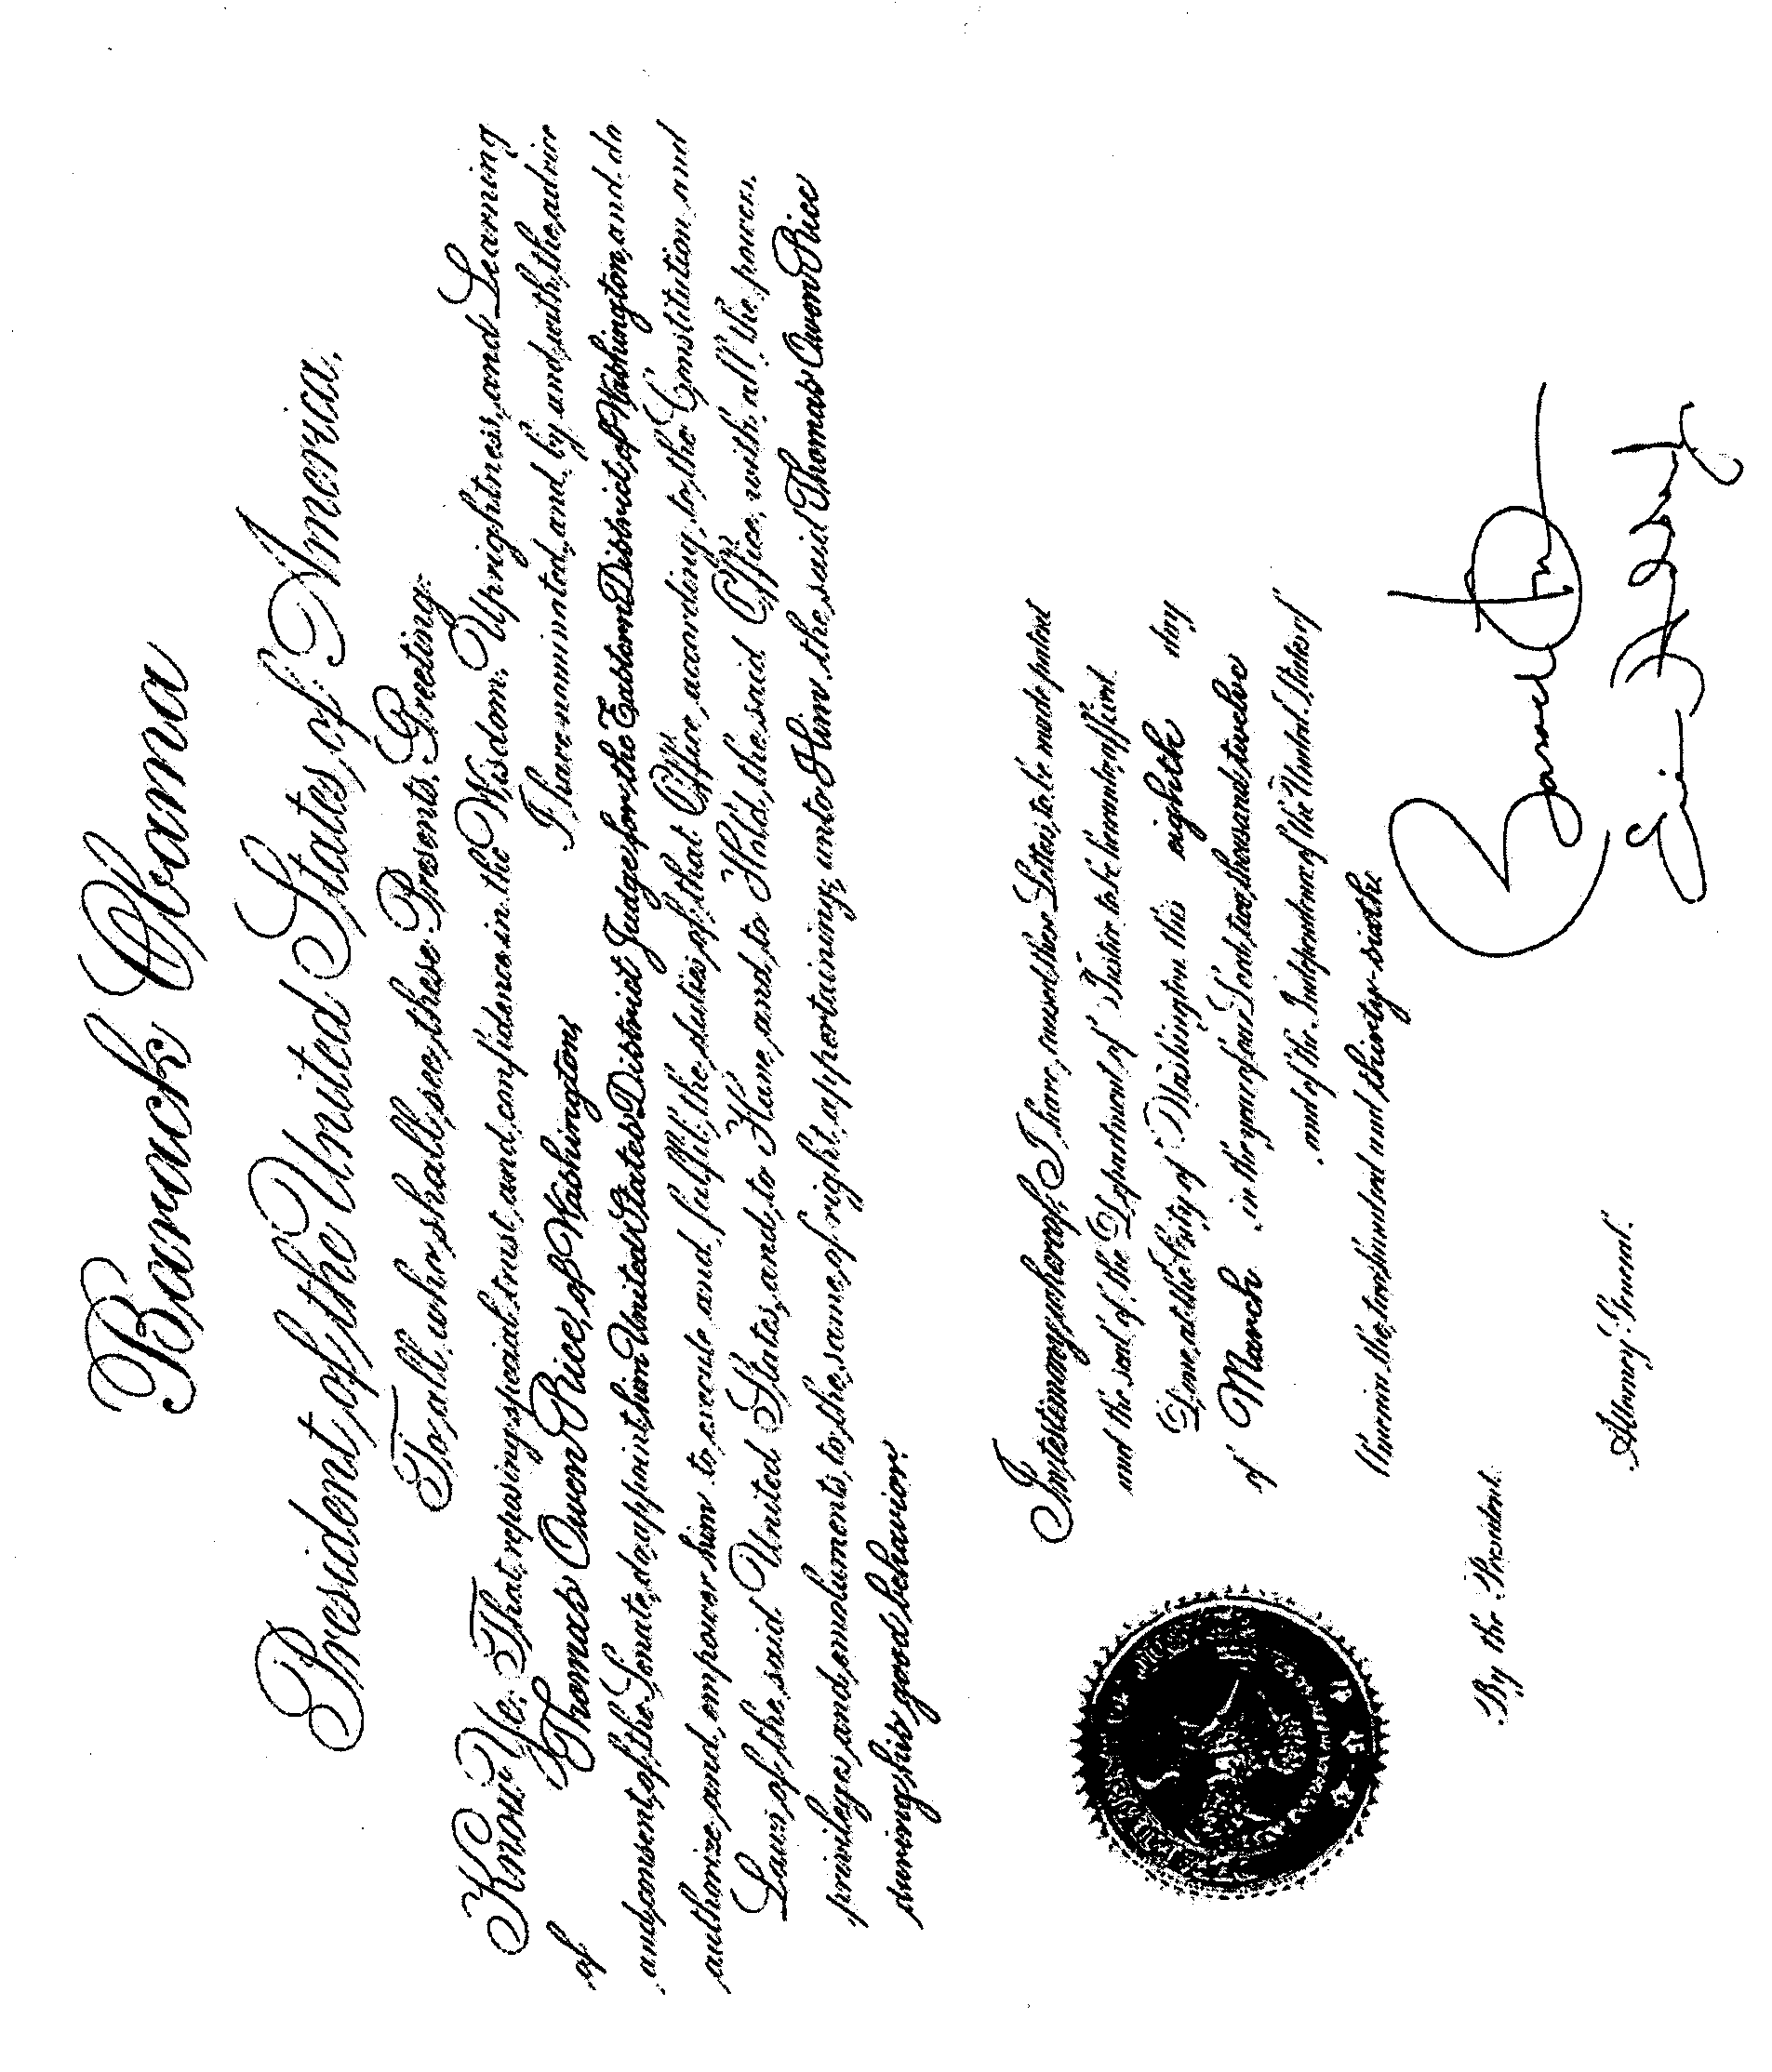 Barack Obama
President of the United States of America.
To all who shall see these Presents, Greeting:
Know Ye; That reposing special trust and confidence in the Wisdom, Uprightness, and Learning
of Thomas Owen Rice, of Washington, I have nominated, and, by and with the advice
and consent of the Senate, do appoint him United States District Judge for the Eastern District of Washington, and do
authorize and empower him to execute and fulfil the duties of that Office according to the Constitution and
Laws of the said United States, and to Have and to Hold the said Office, with all the powers,
privileges and emoluments to the same of right appertaining, unto Him the said Thomas Owen Rice
during his good behavior.
In testimony whereof, I have caused these Letters to be made patent
and the seal of the Department of Justice to be hereunto affixed.
Done at the City of Washington this eighth day
of March in the year of our Lord two thousand twelve
and of the Independence of the United States of
America the two hundred and thirty-sixth.
Barack Obama
By the President:
Eric Holder
Attorney General.